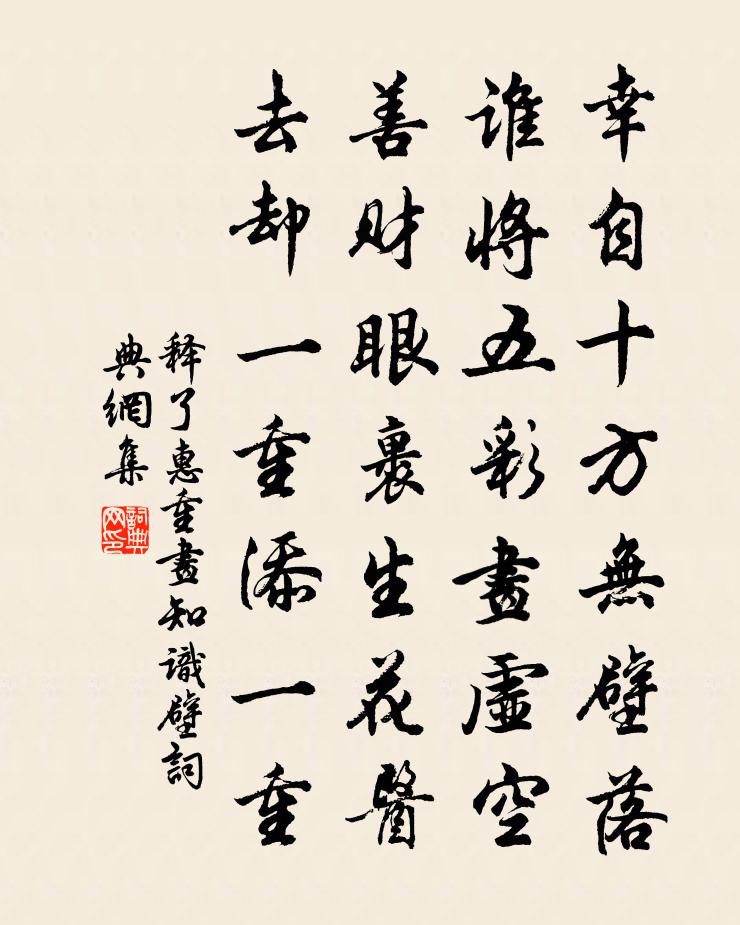 幸自十方無壁落
誰將五彩畫虛空
善财眼裏生花醫
去却一重添一重
释了惠重畫知識壁詞
典網集
詞典
网印